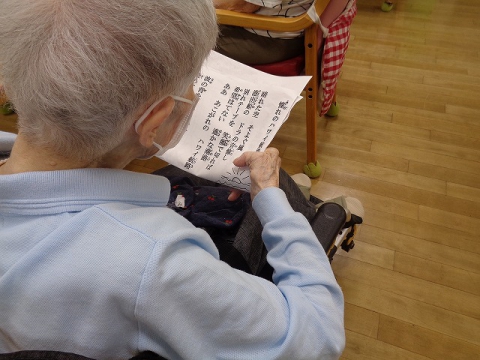 憧れのハワイ
晴れた空 そよぐ風
港出船の ドラの音愉し
別れテープを 笑顔で切れば
希望はてない 遥かな潮路
ああ あこがれの ハワイ航路
波の背を